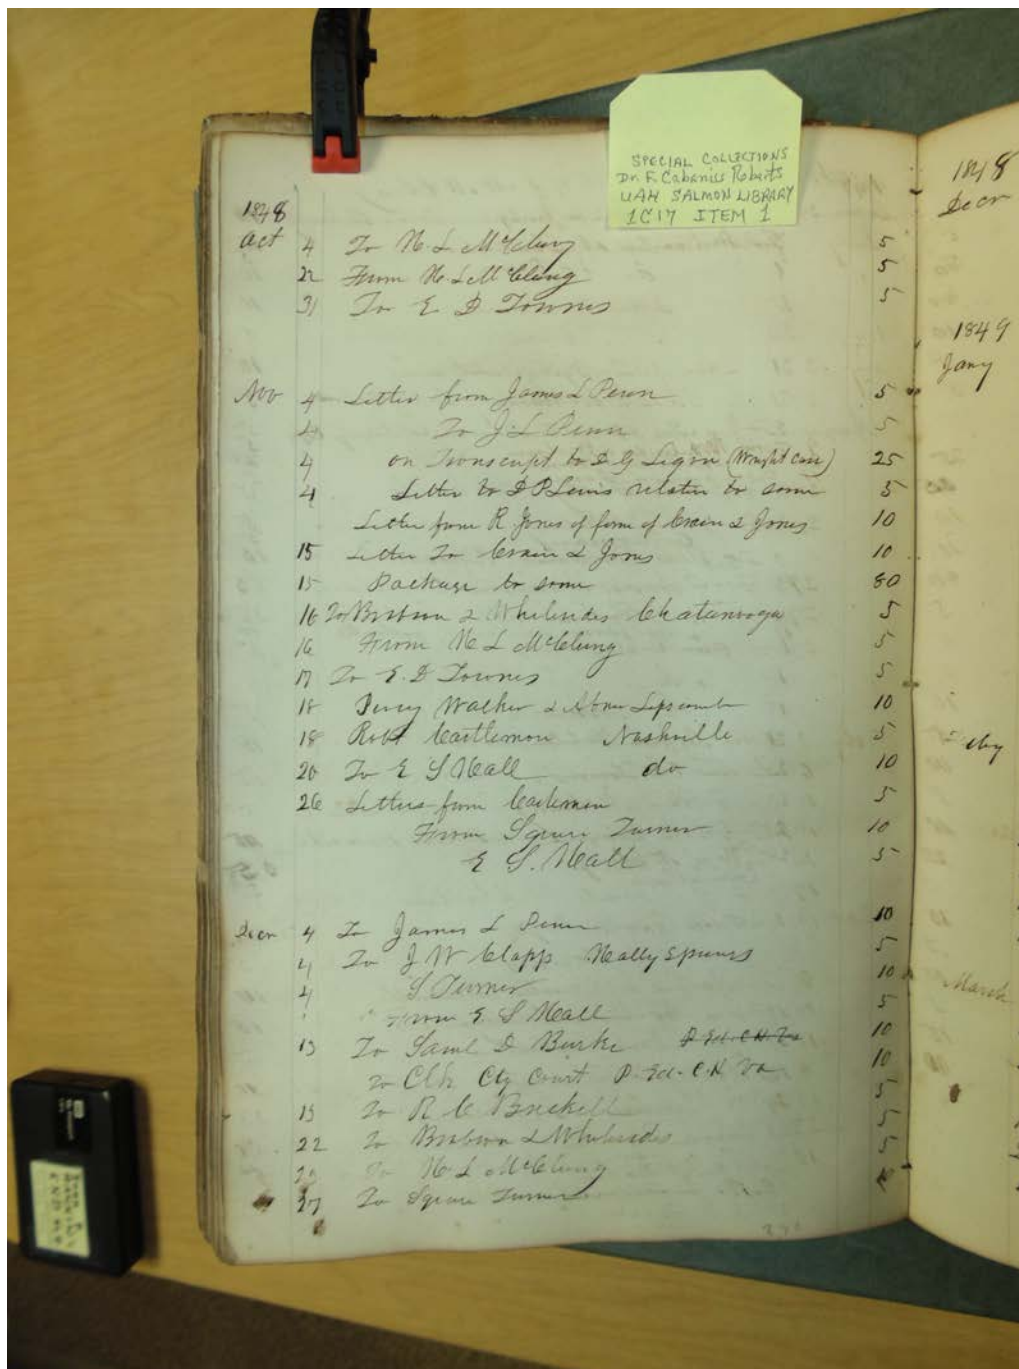 SPECIAL COLLECTIONS
Dr. F. Cabaniss Roberts
UAH SALMON LIBRARY
1C17 ITEM 1
1848
Oct 4 To N. L McClung 5
22 From N. L McClung 5
31 To E D Townes 5
Nov 4 Letter from James L Penn 5
4 To J. L Penn 5
4 on Transcript to D G Ligon (Wright Case) 25
4 Letter to D P Lewis relative to same 5
Letter from R. Jones of firm of Crain & Jones 10
15 Letter To Crain & Jones 10
15 Package to same 80
16 To Brabson & Whitesides Chatanooga 5
16 From N L McClung 5
17 To E. D Townes 5
18 Percy Walker & Abner Lipscomb 10
18 Robt Castleman Nashville 5
20 To E S Heall do 10
26 Letters from Castleman 5
From Squire Turner 10
E S. Heall 5
Decr 4 To James L Penn 10
4 To J W Clapp Holly Springs 5
4 S Turner 10
From E. S Heall 5
13 To Saml D Burke P. Ed. C. H. Va 10
To Clk Cty Court P. Ed. C. H Va 10
19 To R C Brickell 5
22 To Brabson & Whitesides 5
To N L McClung 5
27 To Squire Turner
1848
Decr
1849
Jany
March